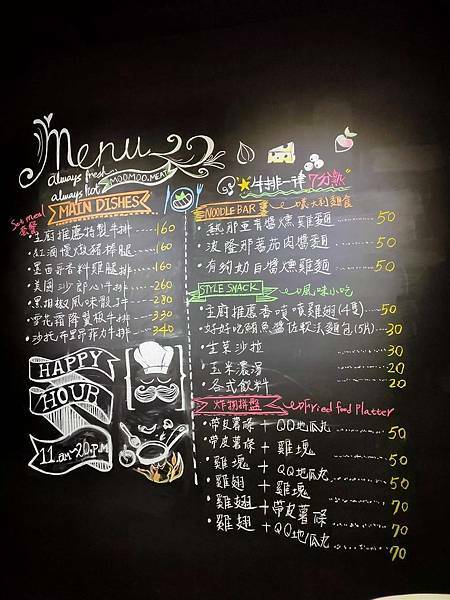 Menu
always fresh
always hot
MOO.MOO.MEAT
Set meal
套餐
MAIN DISHES
・主廚推薦特製牛排 ----- 160
・紅滷慢燉豬棒腿 ----- 160
・墨西哥香料雞腿排 ---- 160
・美國沙朗心牛排 ----- 260
・黑胡椒風味骰子牛 ---- 280
・雪花霜降翼板牛排 ---- 330
・沙托布里昂菲力牛排 --- 340
HAPPY
HOUR
11.am~20.p.m
"★牛排一律7分熟"
NOODLE BAR 義大利麵食
・熱那亞青醬燻雞麵 ----- 50
・波隆那蕃茄肉醬麵 ----- 50
・有夠奶白醬燻雞麵 ----- 50
STYLE SNACK 風味小吃
・主廚推薦香噴噴雞翅(4隻) ---- 50
・好好吃鯷魚醬佐軟法麵包(5片) -- 30
・生菜沙拉 ---------- 30
・玉米濃湯 ---------- 20
・各式飲料 ---------- 20
炸物拼盤 Fried food Platter
・帶皮薯條 + QQ地瓜丸 ------ 50
・帶皮薯條 + 雞塊 ------ 50
・雞塊 + QQ地瓜丸 ------ 50
・雞翅 + 雞塊 ------ 70
・雞翅 + 帶皮薯條 ------ 70
・雞翅 + QQ地瓜丸 ------ 70